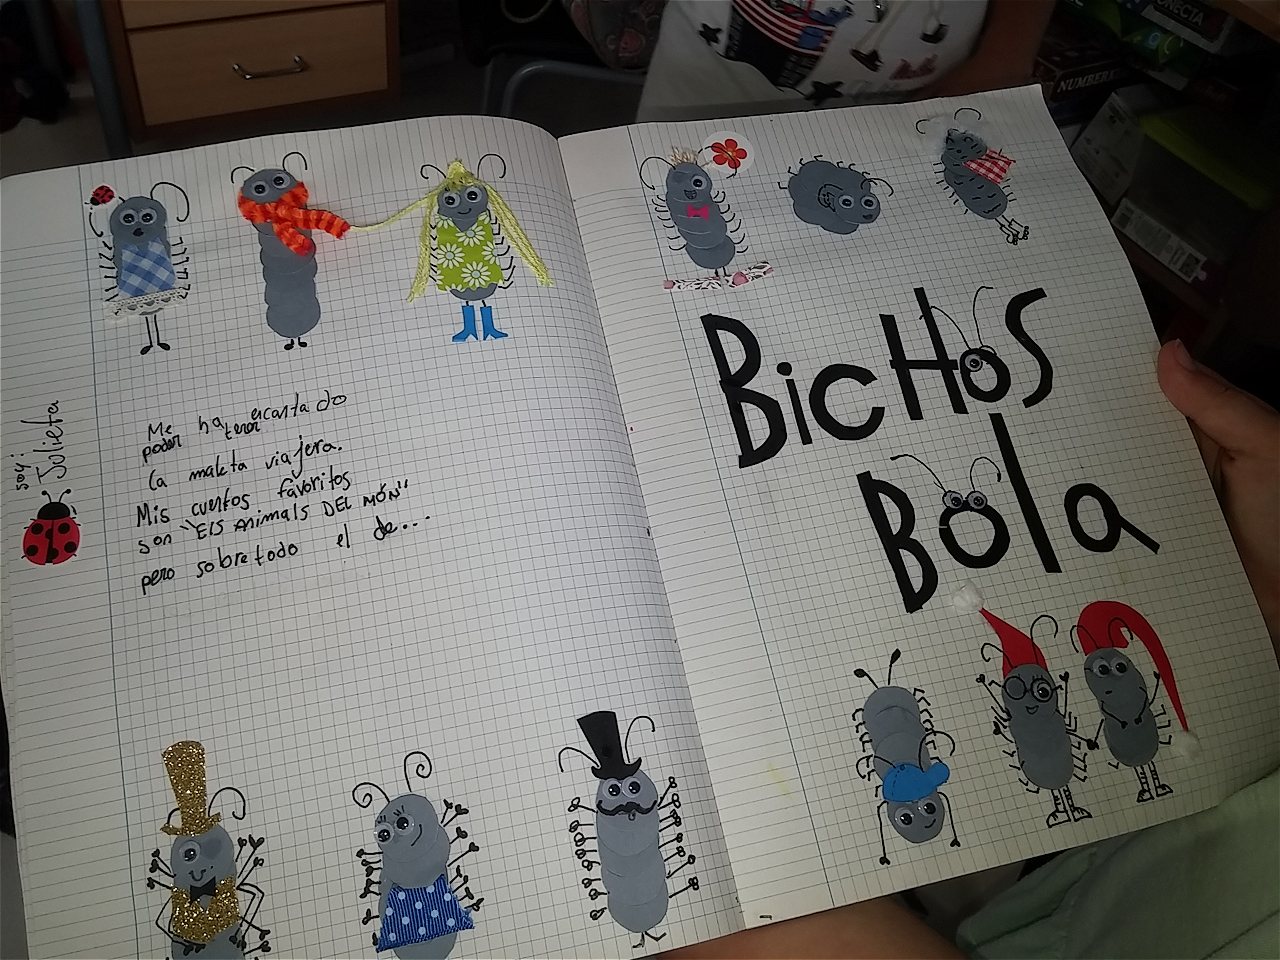 soy:
Julieta
Me ha encantado
poder tener
la maleta viajera.
Mis cuentos favoritos
son "Els animals DEL MÓN"
pero sobretodo el de...
BicHoS
Bola
CONECTA